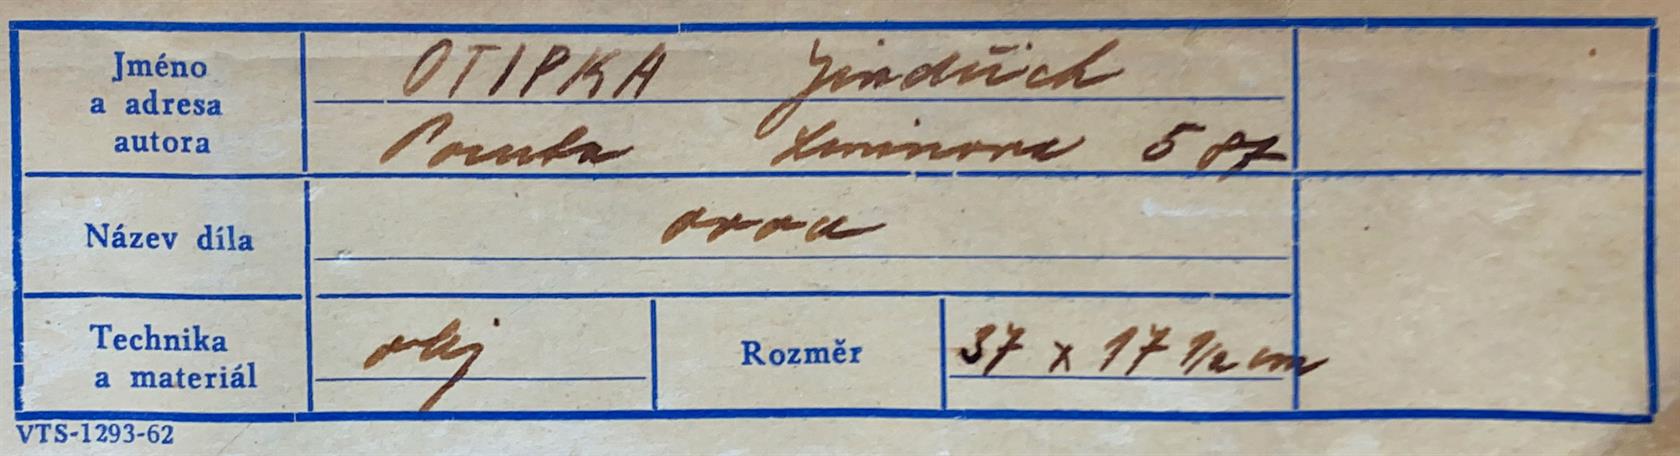 Jméno
a adresa
autora
OTIPKA Jindřich
Poruba Leninova 587
Název díla
Technika
a materiál
olej
Rozměr
37 x 17 1/2 cm
VTS-1293-62